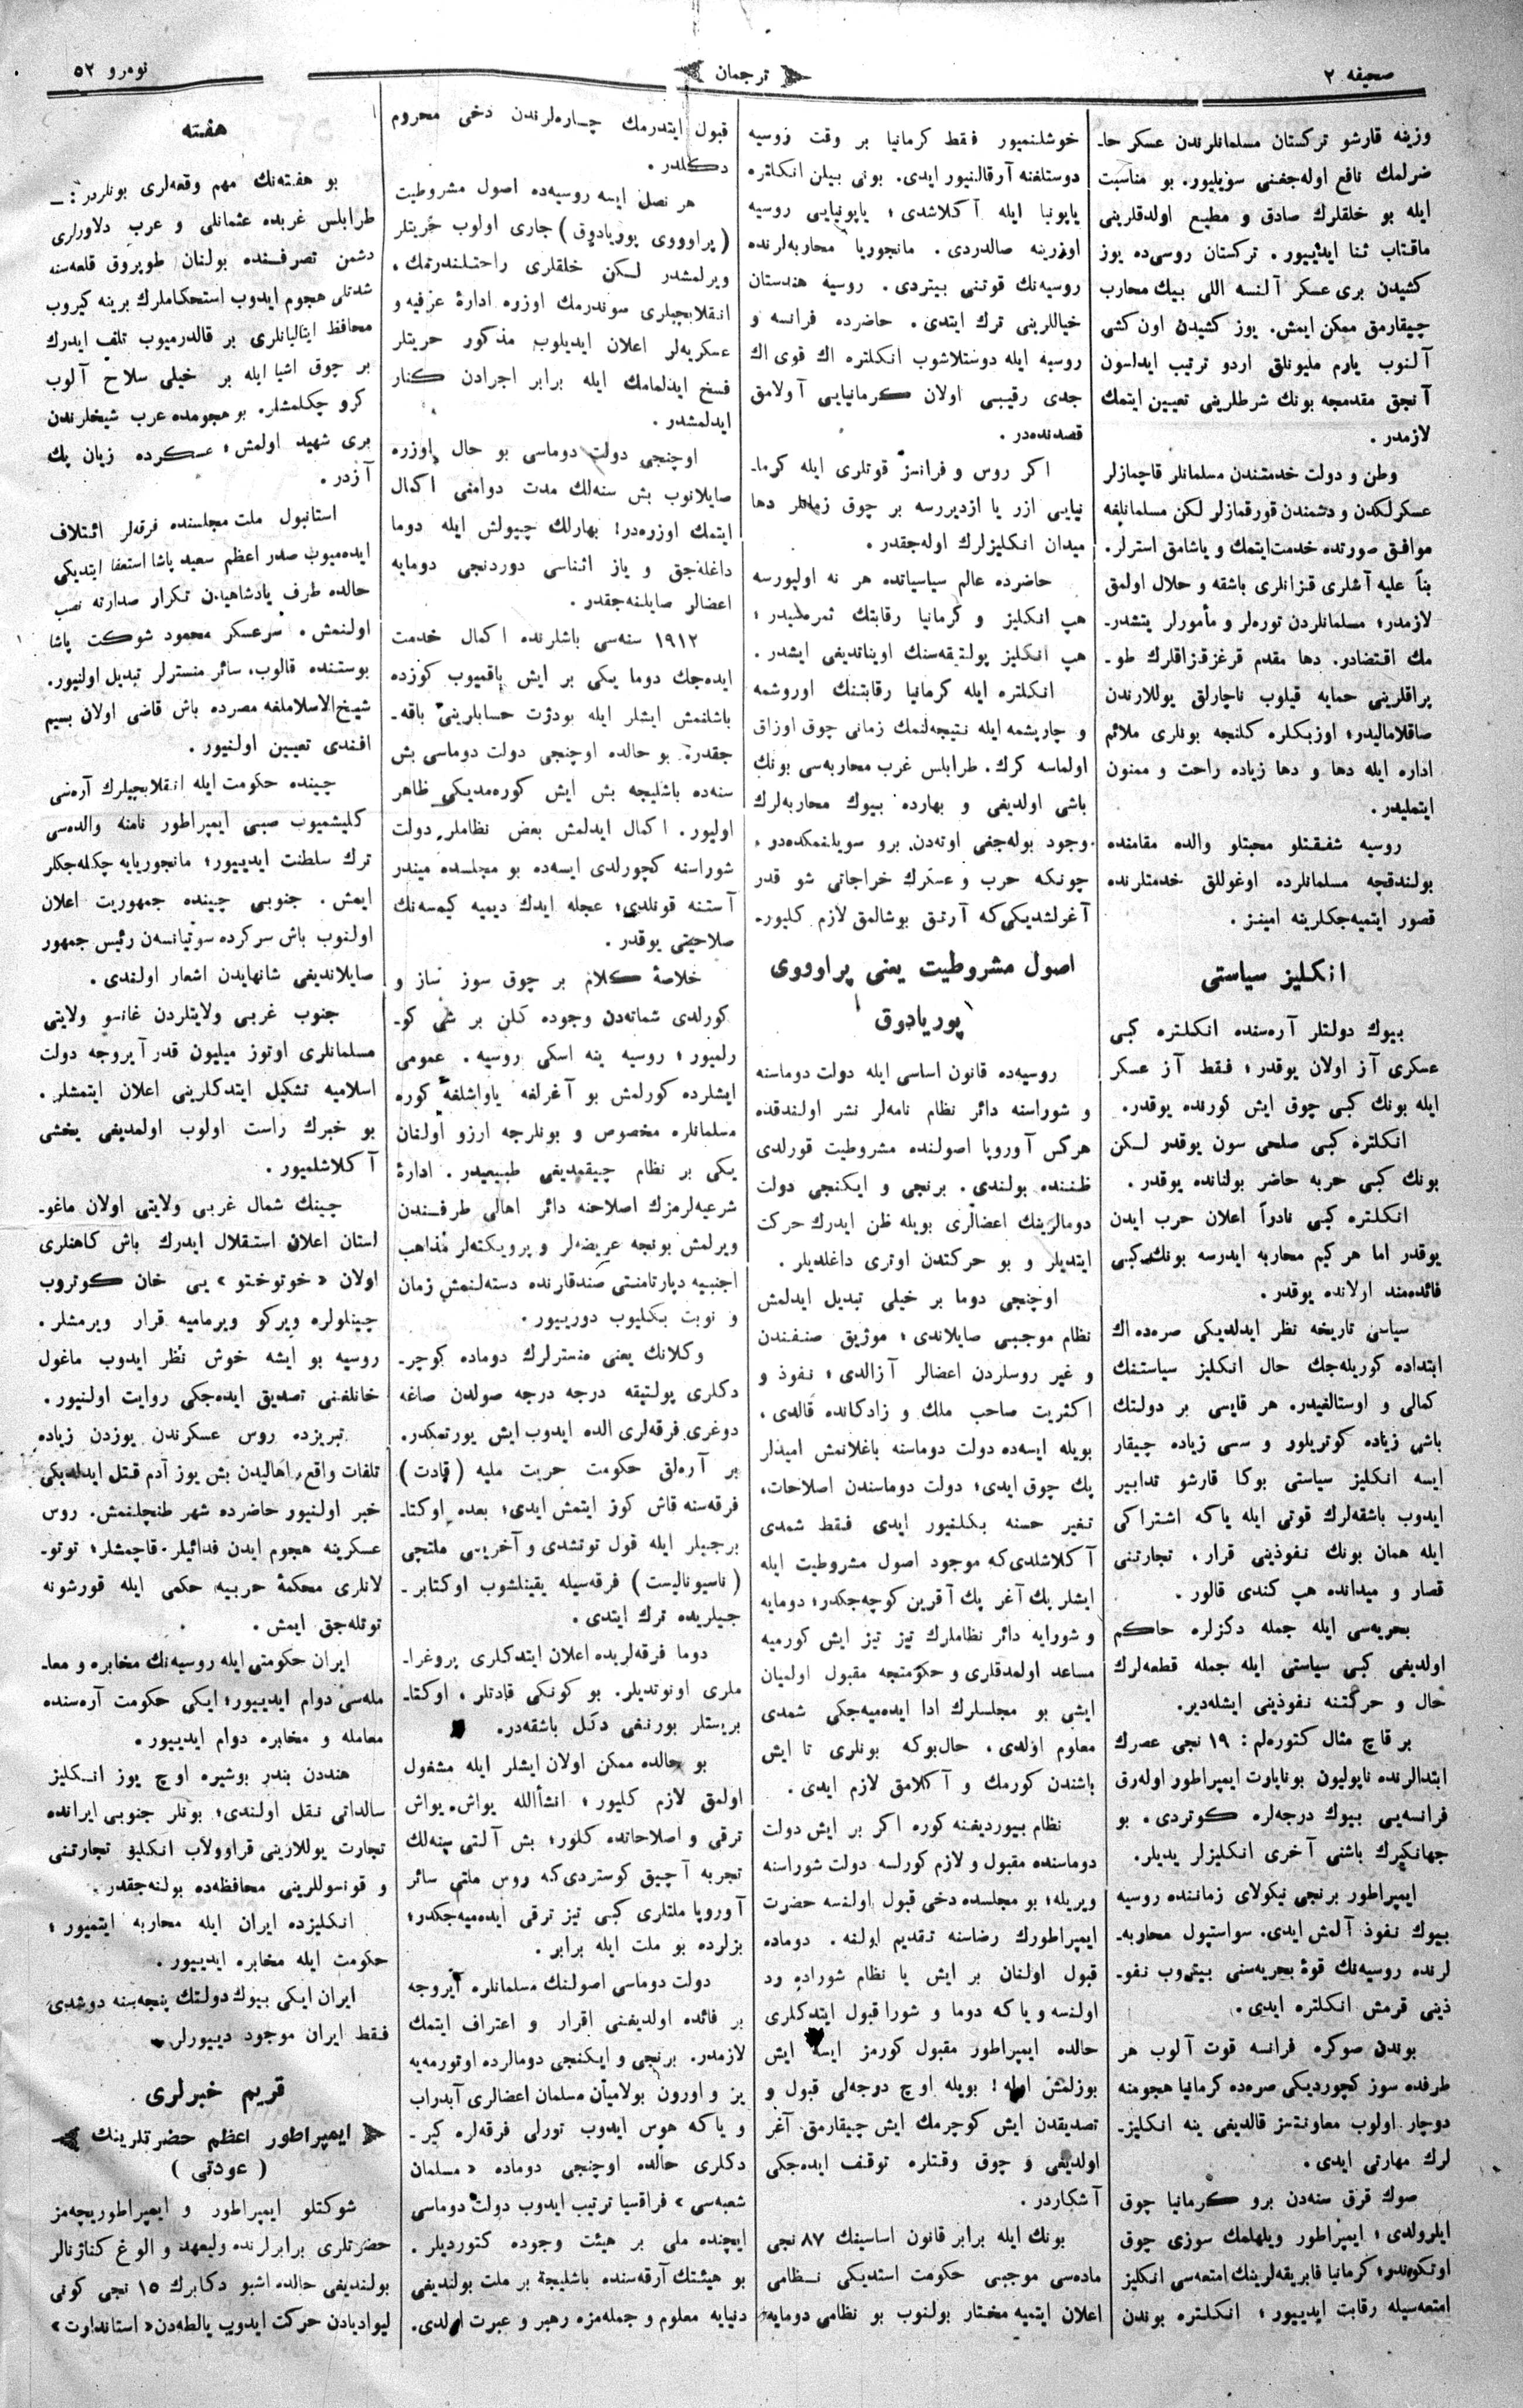 صحیفه ۲
ترجمان
نومرو ۵۲
وزینه قارشو ترکستان مسلمانلرندن عسکر حا-
ضرلمك نافع اوله‌جغنی سویلیور. بو مناسبت
ایله بو خلقلرك صادق و مطیع اولدقلرینی
ماقتاب ثنا ایدییور. ترکستان روسی‌ده یوز
کشیدن بری عسکر آلنسه اللی بیك محارب
چیقارمق ممکن ایمش. یوز کشیدن اون کشی
آلنوب یارم ملیونلق اردو ترتیب ایدلسون
آنجق مقدمجه بونك شرطلرینی تعیین ایتمك
لازمدر.
وطن و دولت خدمتندن مسلمانلر قاچمازلر
عسکرلکدن و دشمندن قورقمازلر لکن مسلمانلغه
موافق صورتده خدمت ایتمك و یاشامق استرلر.
بناً علیه آشلری قزانلری باشقه و حلال اولمق
لازمدر؛ مسلمانلردن توره‌لر و مأمورلر یتشدر-
مك اقتضادر. دها مقدم قرغزقزاقلرك طو-
پراقلرینی حمایه قیلوب ناچارلق یوللارندن
صاقلامالیدر؛ اوزبکلره کلنجه بونلری ملائم
اداره ایله دها و دها زیاده راحت و ممنون
ایتملیدر.
روسیه شفقتلو محبتلو والده مقامنده
بولندقچه مسلمانلرده اوغوللق خدمتلرنده
قصور ایتمیه‌جکلرینه امینز.
انکلیز سیاستی
بیوك دولتلر آره‌سنده انکلتره کبی
عسکری آز اولان یوقدر؛ فقط آز عسکر
ایله بونك کبی چوق ایش کورنده یوقدر.
انکلتره کبی صلحی سون یوقدر لکن
بونك کبی حربه حاضر بولنانده یوقدر.
انکلتره کبی نادراً اعلان حرب ایدن
یوقدر اما هر کیم محاربه ایدرسه بونك کبی
فائده‌مند اولانده یوقدر.
سیاسی تاریخه نظر ایدلدیکی صره‌ده اك
ابتداده کوریله‌جك حال انکلیز سیاستنك
کمالی و اوستالغیدر. هر قایسی بر دولتك
باشی زیاده کوتریلور و سسی زیاده چیقار
ایسه انکلیز سیاستی بوکا قارشو تدابیر
ایدوب باشقه‌لرك قوتی ایله یاکه اشتراکی
ایله همان بونك نفوذینی قرار، تجارتنی
قصار و میدانده هپ کندی قالور.
بحریه‌سی ایله جمله دکزلره حاکم
اولدیغی کبی سیاستی ایله جمله قطعه‌لرك
حال و حرکتنه نفوذینی ایشله‌دیر.
بر قاچ مثال کتوره‌لم: ۱۹ نجی عصرك
ابتدالرنده ناپولیون بوناپارت ایمپراطور اوله‌رق
فرانسه‌یی بیوك درجه‌لره کوتردی. بو
جهانکیرك باشنی آخری انکلیزلر یدیلر.
ایمپراطور برنجی نیکولای زماننده روسیه
بیوك نفوذ آلمش ایدی. سواستپول محاربه-
لرنده روسیه‌نك قوۀ بحریه‌سنی بیتروب نفو-
ذینی قرمش انکلتره ایدی.
بوندن صوکره فرانسه قوت آلوب هر
طرفده سوز کچوردیکی صره‌ده کرمانیا هجومنه
دوچار اولوب معاونتسز قالدیغی ینه انکلیز-
لرك مهارتی ایدی.
صوك قرق سنه‌دن برو کرمانیا چوق
ایلرولدی؛ ایمپراطور ویلهلمك سوزی چوق
اوتکوندر؛ کرمانیا فابریقه‌لرینك امتعه‌سی انکلیز
امتعه‌سیله رقابت ایدییور؛ انکلتره بوندن
خوشلنمیور فقط کرمانیا بر وقت روسیه
دوستلغنه آرقالنیور ایدی. بونی بیلن انکلتره
یاپونیا ایله آکلاشدی؛ یاپونیایی روسیه
اوزرینه صالدردی. مانجوریا محاربه‌لرنده
روسیه‌نك قوتنی بیتردی. روسیه هندستان
خیاللرینی ترك ایتدی. حاضرده فرانسه و
روسیه ایله دوستلاشوب انکلتره اك قوی اك
جدی رقیبی اولان کرمانیایی آولامق
قصدنده‌در.
اکر روس و فرانسز قوتلری ایله کرما-
نیایی ازر یا ازدیررسه بر چوق زمانلر دها
میدان انکلیزلرك اوله‌جقدر.
حاضرده عالم سیاسیاتده هر نه اولیورسه
هپ انکلیز و کرمانیا رقابتك ثمره‌سیدر؛
هپ انکلیز پولتیقه‌سنك اویناتدیغی ایشدر.
انکلتره ایله کرمانیا رقابتنك اوروشمه
و چارپشمه ایله نتیجه‌لنمك زمانی چوق اوزاق
اولماسه کرك. طرابلس غرب محاربه‌سی بونك
باشی اولدیغی و بهارده بیوك محاربه‌لرك
وجود بوله‌جغی اوته‌دن برو سویلنمکده‌در،
چونکه حرب و عسکرك خراجاتی شو قدر
آغرلشدیکی‌که آرتق بوشالمق لازم کلیور.
اصول مشروطیت یعنی پراووی
پوریادوق
روسیه‌ده قانون اساسی ایله دولت دوماسنه
و شوراسنه دائر نظام نامه‌لر نشر اولندقده
هرکس آوروپا اصولنده مشروطیت قورلدی
ظننده بولندی. برنجی و ایکنجی دولت
دومالرینك اعضالری بویله ظن ایدرك حرکت
ایتدیلر و بو حرکتدن اوتری داغلدیلر.
اوچنجی دوما بر خیلی تبدیل ایدلمش
نظام موجبی صایلاندی؛ موژیق صنفندن
و غیر روسلردن اعضالر آزالدی؛ نفوذ و
اکثریت صاحب ملك و زادکانده قالدی.
بویله ایسه‌ده دولت دوماسنه باغلانمش امیدلر
پك چوق ایدی؛ دولت دوماسندن اصلاحات،
تغیر حسنه بکلنیور ایدی فقط شمدی
آکلاشلدی‌که موجود اصول مشروطیت ایله
ایشلر پك آغر پك آقرین کوچه‌جکدر؛ دومایه
و شورایه دائر نظاملرك تیز تیز ایش کورمیه
مساعد اولمدقلری و حکومتجه مقبول اولمیان
ایشی بو مجلسلرك ادا ایده‌میه‌جکی شمدی
معلوم اولدی. حال‌بوکه بونلری تا ایش
باشندن کورمك و آکلامق لازم ایدی.
نظام بیوردیغنه کوره اکر بر ایش دولت
دوماسنده مقبول و لازم کورلسه دولت شوراسنه
ویریله؛ بو مجلسده دخی قبول اولنسه حضرت
ایمپراطورك رضاسنه تقدیم اولنه. دوماده
قبول اولنان بر ایش یا نظام شوراده رد
اولنسه و یاکه دوما و شورا قبول ایتدکلری
حالده ایمپراطور مقبول کورمز ایسه ایش
بوزلمش اوله! بویله اوچ درجه‌لی قبول و
تصدیقدن ایش کوچرمك ایش چیقارمق آغر
اولدیغی و چوق وقتلره توقف ایده‌جکی
آشکاردر.
بونك ایله برابر قانون اساسینك ۸۷ نجی
ماده‌سی موجبی حکومت استدیکی نظامی
اعلان ایتمیه مختار بولنوب بو نظامی دومایه
قبول ایتدرمك چاره‌لرندن دخی محروم
دکلدر.
هر نصل ایسه روسیه‌ده اصول مشروطیت
(پراووی پوریادوق) جاری اولوب حریتلر
ویرلمشدر لکن خلقلری راحتلندرتمك،
انقلابجیلری سوندرمك اوزره ادارۀ عرفیه و
عسکریه‌لر اعلان ایدیلوب مذکور حریتلر
فسخ ایدلمامك ایله برابر اجرادن کنار
ایدلمشدر.
اوچنجی دولت دوماسی بو حال اوزره
صایلانوب بش سنه‌لك مدت دوامنی اکمال
ایتمك اوزره‌در! بهارلك چیولش ایله دوما
داغله‌جق و یاز اثناسی دوردنجی دومایه
اعضالر صایلنه‌جقدر.
۱۹۱۲ سنه‌سی باشلرنده اکمال خدمت
ایده‌جك دوما یکی بر ایش باقمیوب کوزده
باشلنمش ایشلر ایله بودژت حسابلرینی باقه-
جقدر. بو حالده اوچنجی دولت دوماسی بش
سنه‌ده باشلیجه بش ایش کوره‌مدیکی ظاهر
اولیور. اکمال ایدلمش بعض نظاملر دولت
شوراسنه کچورلدی ایسه‌ده بو مجلسده میندر
آستنه قونلدی؛ عجله ایدك دیمیه کیمسه‌نك
صلاحیتی یوقدر.
خلاصۀ کلام بر چوق سوز ساز و
کورلدی شماته‌دن وجوده کلن بر شی کو-
رلمیور؛ روسیه ینه اسکی روسیه. عمومی
ایشلرده کورلمش بو آغرلغه یاواشلغه کوره
مسلمانلره مخصوص و بونلرجه ارزو اولنان
یکی بر نظام چیقمدیغی طبیعیدر. ادارۀ
شرعیه‌لرمزك اصلاحنه دائر اهالی طرفندن
ویرلمش بونجه عریضه‌لر و پرویکته‌لر مذاهب
اجنبیه دپارتامنتی صندقارنده دسته‌لنمش زمان
و نوبت بکلیوب دورییور.
وکلانك یعنی منسترلرك دوماده کوچر-
دکلری پولتیقه درجه درجه صولدن صاغه
دوغری فرقه‌لری الده ایدوب ایش یورتمکدر.
بر آره‌لق حکومت حریت ملیه (قادت)
فرقه‌سنه قاش کوز ایتمش ایدی؛ بعده اوکتا-
برجیلر ایله قول توتشدی و آخریسی ملتجی
(ناسیونالیست) فرقه‌سیله یقینلشوب اوکتابر-
جیلریده ترك ایتدی.
دوما فرقه‌لریده اعلان ایتدکلری پروغرا-
ملری اونوتدیلر. بو کونکی قادتلر، اوکتا-
بریستلر بورنغی دکل باشقه‌در.
بو حالده ممکن اولان ایشلر ایله مشغول
اولمق لازم کلیور؛ انشأالله یواش یواش
ترقی و اصلاحاتده کلور؛ بش آلتی سنه‌لك
تجربه آچیق کوستردی‌که روس ملتی سائر
آوروپا ملتلری کبی تیز ترقی ایده‌میه‌جکدر؛
بزلرده بو ملت ایله برابر.
دولت دوماسی اصولنك مسلمانلره آیروجه
بر فائده اولدیغنی اقرار و اعتراف ایتمك
لازمدر. برنجی و ایکنجی دومالرده اوتورمه‌یه
یز و اورون بولامیان مسلمان اعضالری آبدراب
و یاکه هوس ایدوب تورلی فرقه‌لره کیر-
دکلری حالده اوچنجی دوماده «مسلمان
شعبه‌سی» فراقسیا ترتیب ایدوب دولت دوماسی
ایچنده ملی بر هیئت وجوده کتوردیلر.
بو هیئتك آرقه‌سنده باشلیجه بر ملت بولندیغی
دنیایه معلوم و جمله‌مزه رهبر و عبرت اولدی.
هفته
بو هفته‌نك مهم وقعه‌لری بونلردر: —
طرابلس غربده عثمانلی و عرب دلاورلری
دشمن تصرفنده بولنان طوبروق قلعه‌سنه
شدتلی هجوم ایدوب استحکاملرك برینه کیروب
محافظ ایتالیانلری بر قالدرمیوب تلف ایدرك
بر چوق اشیا ایله بر خیلی سلاح آلوب
کرو چکلمشلر. بو هجومده عرب شیخلرندن
بری شهید اولمش؛ عسکرده زیان پك
آزدر.
استانبول ملت مجلسنده فرقه‌لر ائتلاف
ایده‌میوب صدر اعظم سعید پاشا استعفا ایتدیکی
حالده طرف پادشاهیدن تکرار صدارته نصب
اولنمش. سرعسکر محمود شوکت پاشا
بوستنده قالوب، سائر منسترلر تبدیل اولنیور.
شیخ‌الاسلاملغه مصرده باش قاضی اولان بسیم
افندی تعیین اولنیور.
چینده حکومت ایله انقلابجیلرك آره‌سی
کلیشمیوب صبی ایمپراطور نامنه والده‌سی
ترك سلطنت ایدییور؛ مانجوریایه چکله‌جکلر
ایمش. جنوبی چینده جمهوریت اعلان
اولنوب باش سرکرده سوتیانسه‌ن رئیس جمهور
صایلاندیغی شانهایدن اشعار اولندی.
جنوب غربی ولایتلردن غانسو ولایتی
مسلمانلری اوتوز میلیون قدر آیروجه دولت
اسلامیه تشکیل ایتدکلرینی اعلان ایتمشلر.
بو خبرك راست اولوب اولمدیغی یخشی
آکلاشلمیور.
چینك شمال غربی ولایتی اولان ماغو-
لستان اعلان استقلال ایدرك باش کاهنلری
اولان «خوتوختو» یی خان کوتروب
چینلولره ویرکو ویرمامیه قرار ویرمشلر.
روسیه بو ایشه خوش نظر ایدوب ماغول
خانلغنی تصدیق ایده‌جکی روایت اولنیور.
تبریزده روس عسکرندن یوزدن زیاده
تلفات واقع، اهالیدن بش یوز آدم قتل ایدلدیکی
خبر اولنیور حاضرده شهر طنچلنمش. روس
عسکرینه هجوم ایدن فدائیلر قاچمشلر؛ توتو-
لانلری محکمۀ حربیه حکمی ایله قورشونه
توتله‌جق ایمش.
ایران حکومتی ایله روسیه‌نك مخابره و معا-
مله‌سی دوام ایدییور؛ ایکی حکومت آره‌سنده
معامله و مخابره دوام ایدییور.
هنددن بندر بوشیره اوچ یوز انکلیز
سالداتی نقل اولندی؛ بونلر جنوبی ایرانده
تجارت یوللارینی قراوولاب انکلیز تجارتنی
و قونسوللرینی محافظه‌ده بولنه‌جقدر.
انکلیزده ایران ایله محاربه ایتمیور؛
حکومت ایله مخابره ایدییور.
ایران ایکی بیوك دولتك پنجه‌سنه دوشدی
فقط ایران موجود دییورلر.
قریم خبرلری
ایمپراطور اعظم حضرتلرینك
(عودتی)
شوکتلو ایمپراطور و ایمپراطوریچه‌مز
حضرتلری برابرلرنده ولیعهد و الوغ کنازنالر
بولندیغی حالده اشبو دکابرك ۱۵ نجی کونی
لیوادیادن حرکت ایدوب یالطه‌دن «استاندارت»